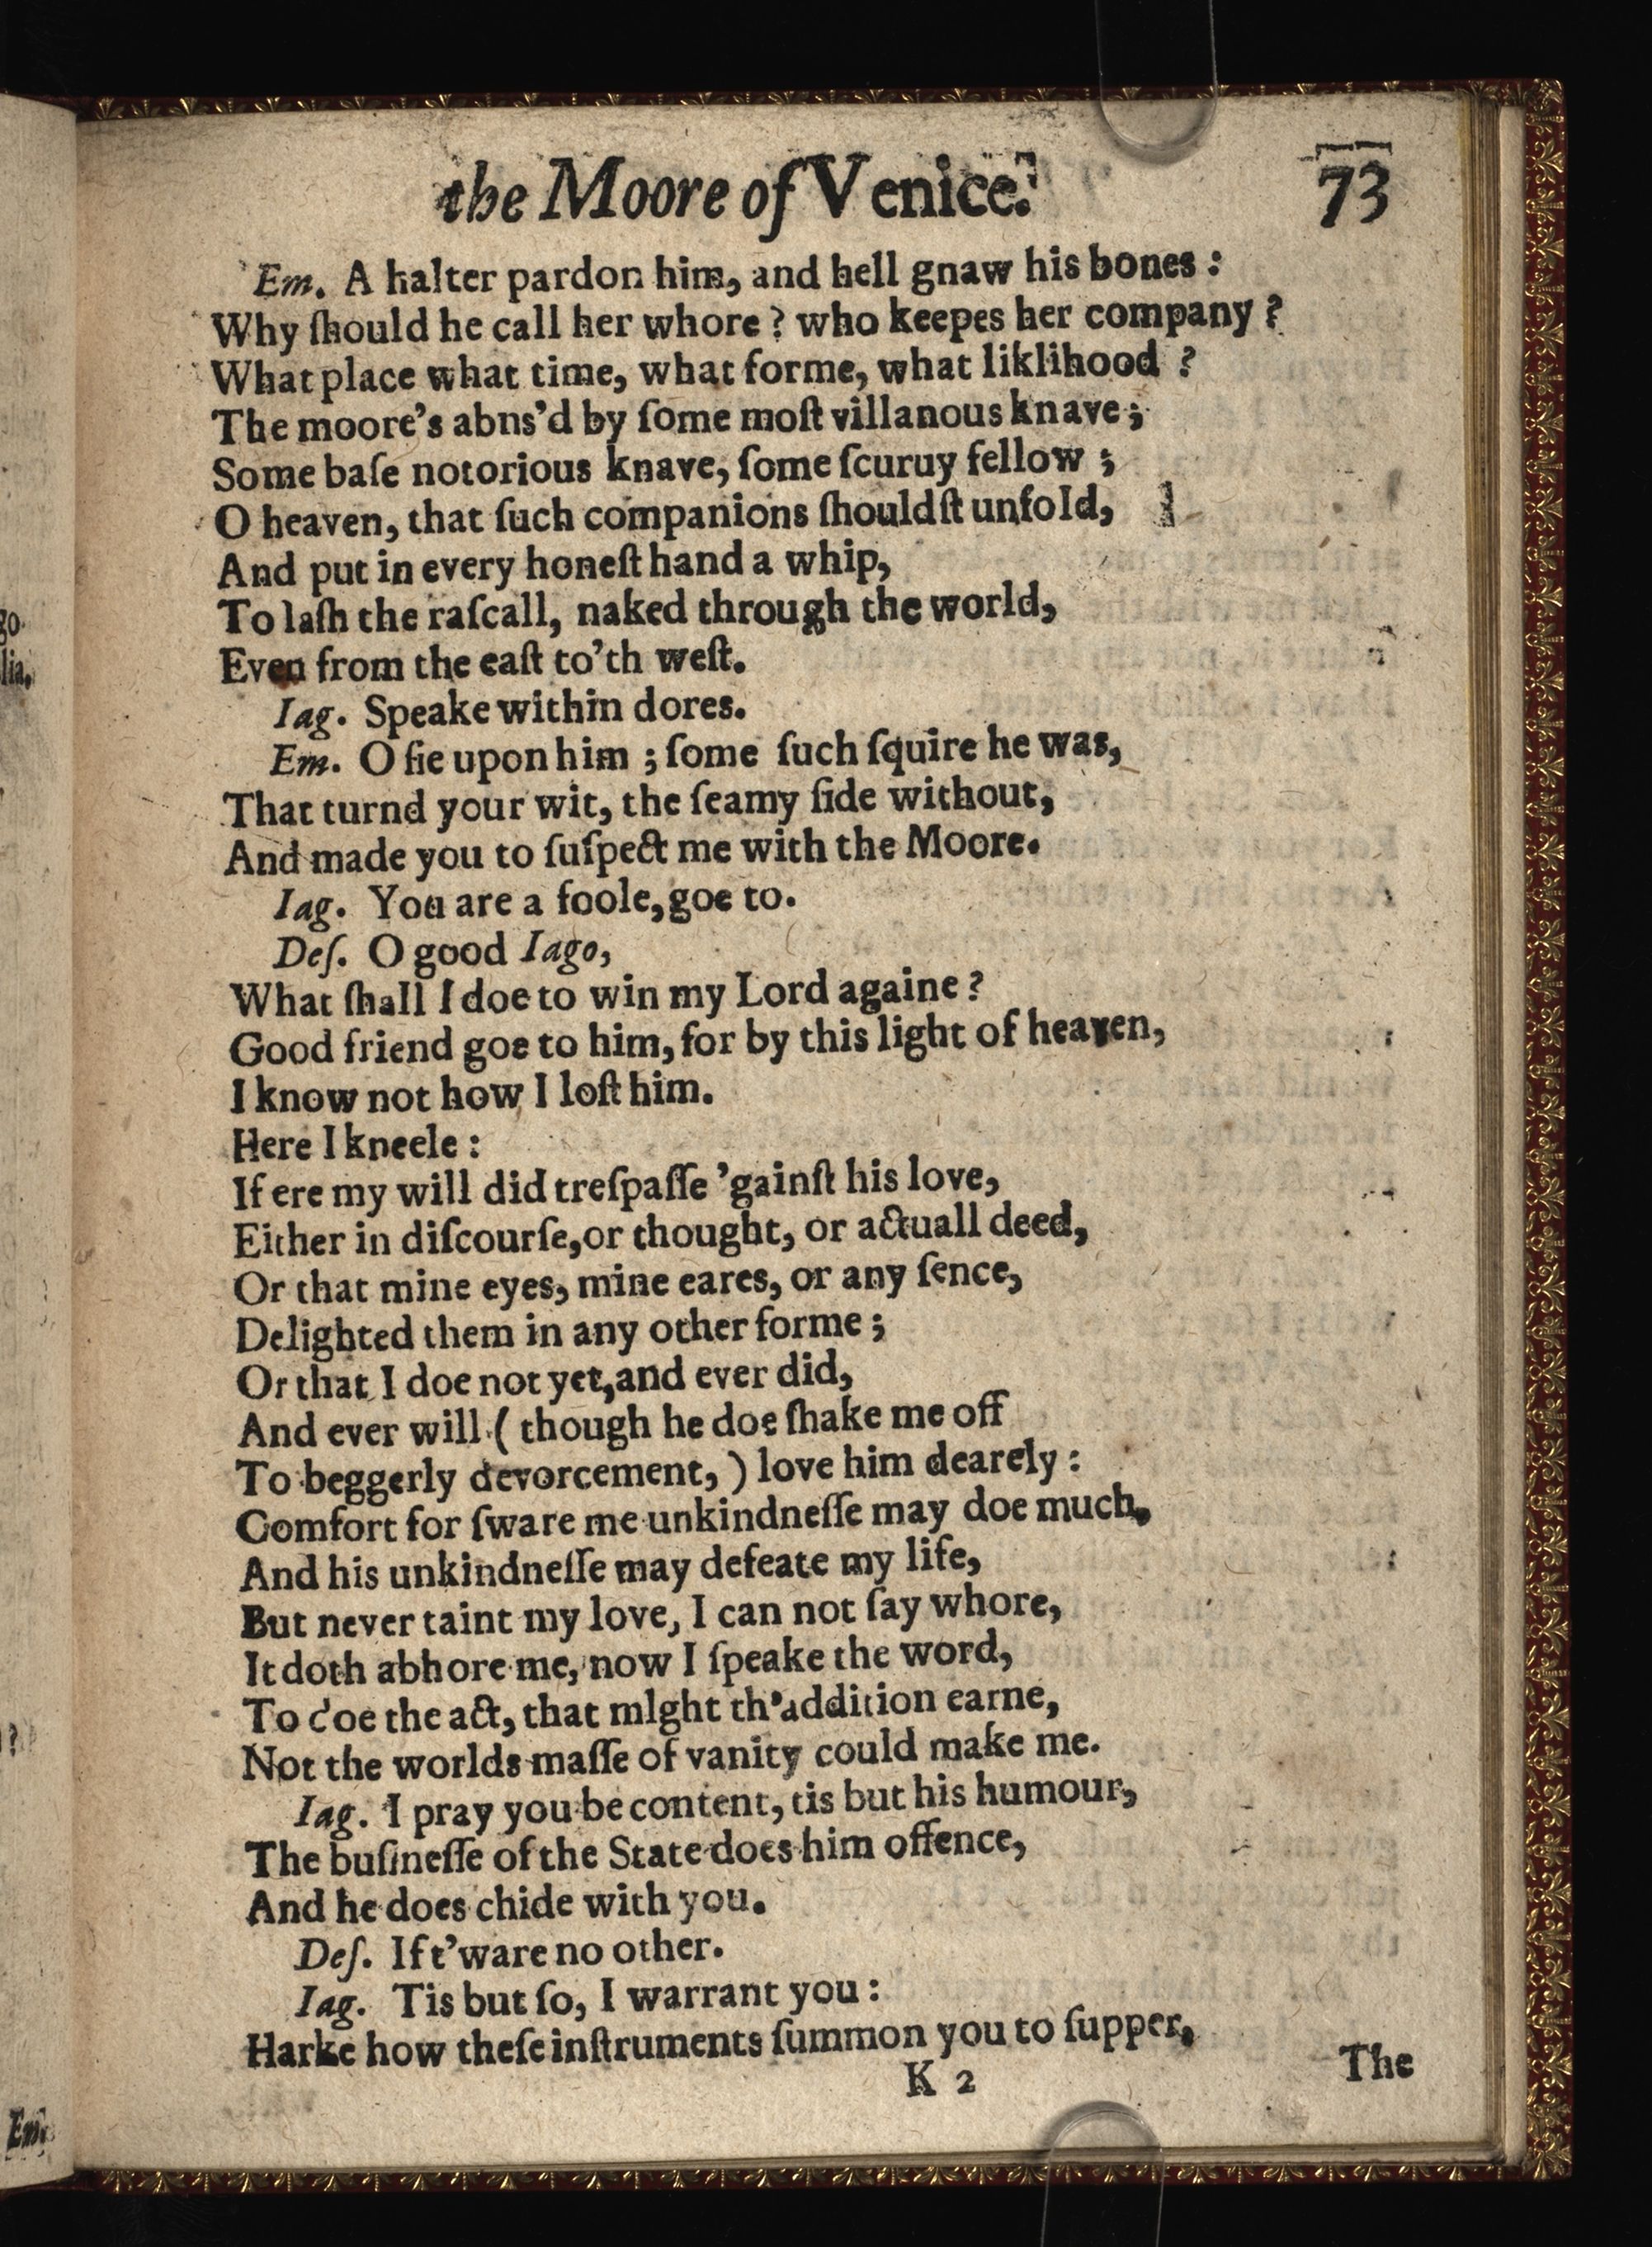 the Moore of Venice. 73
Em. A halter pardon him, and hell gnaw his bones :
Why ſhould he call her whore ? who keepes her company ?
What place what time, what forme, what liklihood ?
The moore's abns'd by ſome moſt villanous knave ;
Some baſe notorious knave, ſome ſcuruy fellow ;
O heaven, that ſuch companions ſhouldſt unfold,
And put in every honeſt hand a whip,
To laſh the raſcall, naked through the world,
Even from the eaſt to'th weſt.
Iag. Speake within dores.
Em. O fie upon him ; ſome ſuch ſquire he was,
That turnd your wit, the ſeamy ſide without,
And made you to ſuſpect me with the Moore.
Iag. You are a foole, goe to.
Deſ. O good Iago,
What ſhall I doe to win my Lord againe ?
Good friend goe to him, for by this light of heaven,
I know not how I loſt him.
Here I kneele :
If ere my will did treſpaſſe 'gainſt his love,
Either in diſcourſe, or thought, or actuall deed,
Or that mine eyes, mine eares, or any ſence,
Delighted them in any other forme ;
Or that I doe not yet, and ever did,
And ever will ( though he doe ſhake me off
To beggerly devorcement, ) love him dearely :
Comfort for ſware me unkindneſſe may doe much,
And his unkindneſſe may defeate my life,
But never taint my love, I can not ſay whore,
It doth abhore me, now I ſpeake the word,
To doe the act, that mlght th'addition earne,
Not the worlds maſſe of vanity could make me.
Iag. I pray you be content, tis but his humour,
The buſineſſe of the State does him offence,
And he does chide with you.
Deſ. If t'ware no other.
Iag. Tis but ſo, I warrant you :
Harke how theſe inſtruments ſummon you to ſupper,
K 2 The
go
lia,
?
Em.